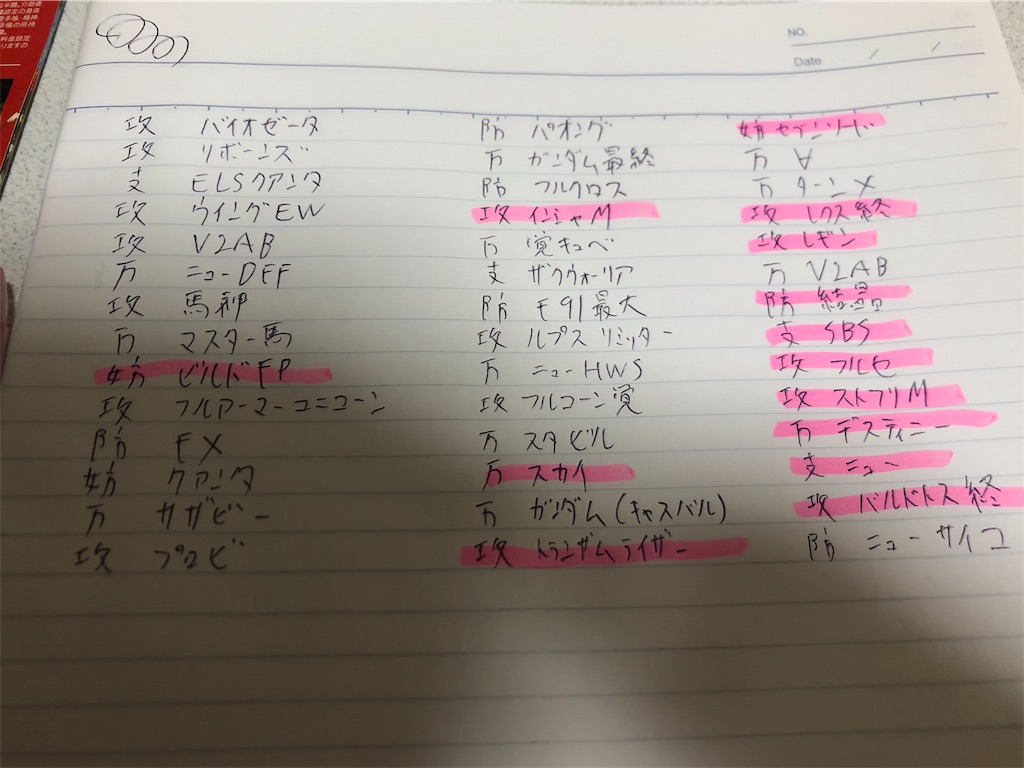 NO.
Date / /
攻 バイオゼータ
攻 リボーンズ
支 ELSクアンタ
攻 ウイングEW
攻 V2AB
万 ニューDEF
攻 馬神
万 マスター馬
妨 ビルドFP
攻 フルアーマーユニコーン
防 FX
妨 クアンタ
万 サザビー
攻 プロビ
防 パオング
万 ガンダム最終
防 フルクロス
攻 インジャM
万 覚キュベ
支 ザクウォーリア
防 F91最大
攻 ルプス リミッター
万 ニューHWS
攻 フルコーン覚
万 スタビル
万 スカイ
万 ガンダム(キャスバル)
攻 トランザムライザー
妨 セブンソード
万 ∀
万 ターンX
攻 レクス終
攻 レギン
万 V2AB
防 結晶
支 SBS
攻 フルセ
攻 ストフリM
万 デスティニー
支 ニュー
攻 バルバトス終
防 ニューサイコ